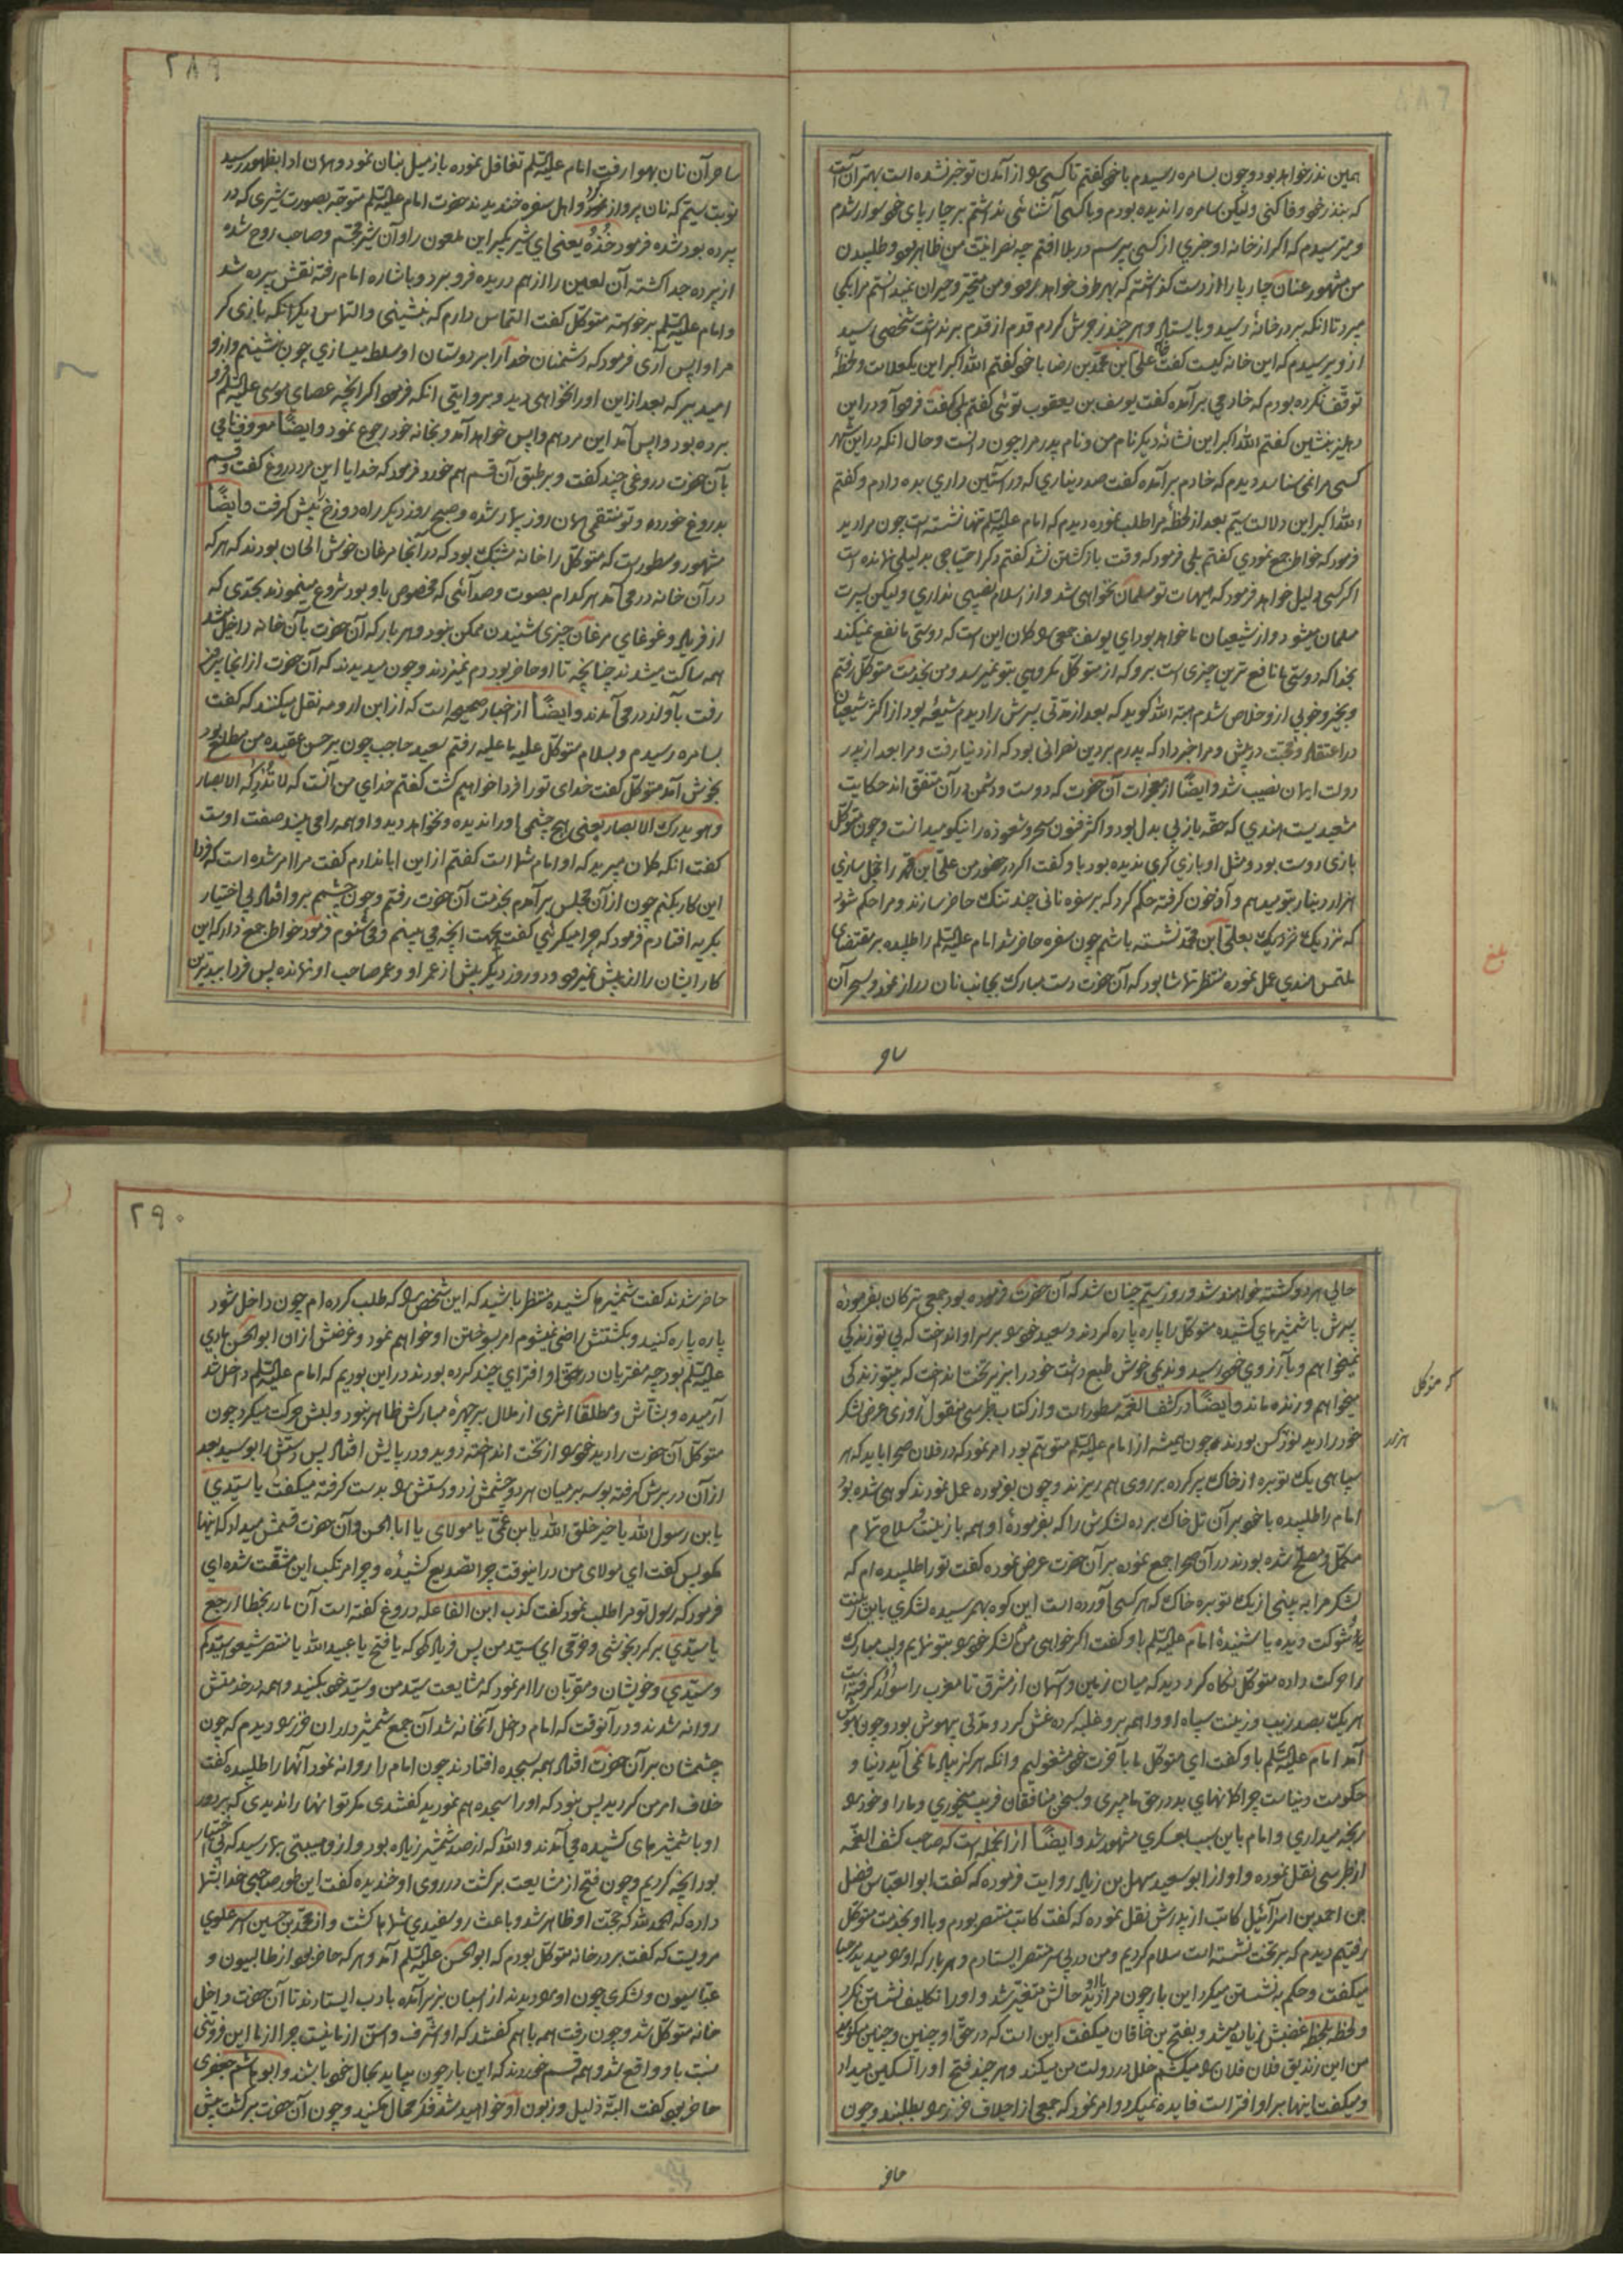 همین نذر خواهد بود و چون بسامره رسیدم با خود گفتم تا کسی را از آمدن تو خبر نشده است بهتر آنست
که بنذر خود وفا کنی ولیکن سامره را ندیده بودم و با کسی آشنائی نداشتم بر چارپای خود سوار شدم
و میترسیدم که اگر از خانه او خبری از کسی بپرسم در بلا افتم چه نصرانیت من ظاهر بود و طلبیدن
من مشهور عنان چارپا را از دست گذاشتم که بهر طرف خواهد برود و من متحیر و حیران نمیدانستم مرا بکجا
میبرد تا انکه بر در خانهٔ رسید و بایستاد و هر چند زجرش کردم قدم از قدم بر نداشت شخصی رسید
ازو پرسیدم که این خانه کیست گفت خانه علی ابن محمد بن رضا با خود گفتم الله اکبر این یکعلامت و لحظهٔ
توقف نکرده بودم که خادمی بر آمده گفت یوسف بن یعقوب توئی گفتم بلی گفت فرود آو در این
دهلیز بنشین گفتم الله اکبر این نشانهٔ دیگر نام من و نام پدر مرا چون دانست و حال انکه در این شهر
کسی مرا نمی شناسد دیدم که خادم بر آمده گفت صد دیناری که در آستین داری بده دادم و گفتم
الله اکبر این دلالت سیم بعد از لحظهٔ مرا طلب نموده دیدم که امام علیه السلم تنها نشسته است چون مرا دید
فرمود که خواطر جمع نمودی گفتم بلی فرمود که وقت باز گشتن نشد گفتم دگر احتیاجی بدلیلی نمانده است
اگر کسی دلیل خواهد فرمود که هیهات تو مسلمان نخواهی شد و از اسلام نصیبی نداری ولیکن پسرت
مسلمان میشود و از شیعیان ما خواهد بود ای یوسف جمعی را گمان این است که دوستی ما نفع نمیکند
بخدا که دوستی ما نافع ترین چیزی است برو که از متوکل مکروهی بتو نمیرسد و من بخدمت متوکل رفتم
و بخیر و خوبی ازو خلاص شدم هبة الله گوید که بعد از مدتی پسرش را دیدم شیعه بود از اکثر شیعیان
در اعتقاد و محبت در پیش و مرا خبر داد که پدرم بر دین نصرانی بود که از دنیا رفت و مرا بعد از پدر
دولت ایمان نصیب شد وایضًا از معجزات آن حضرت که دوست و دشمن در آن متفق اند حکایت
مشعبدیست هندی که حقه باز بی بدل بود و اکثر فنون سحر و شعوذه را نیکو میدانست و چون متوکل
بازی دوست بود و مثل او بازی گری ندیده بود باو گفت اگر در حضور من علی ابن محمد را خجل سازی
هزار دینار بتو میدهم و آو خون گرفته حکم کرد که بر سفره نانی چند تنک حاضر سازند و مرا حکم شود
که نزدیک نزدیک بعلی ابن محمد نشسته باشم چون سفره حاضر شد امام علیه السلم را طلبیده بر مقتضای
ملتمس هندی عمل نموده منتظر تماشا بود که آن حضرت دست مبارک بجانب نان دراز نمود و بسحر آن
بلغ
۲۸۹
ساحر آن نان بهوا رفت امام علیه السلم تغافل نموده باز میل بنان نمود و همان ادا بظهور رسید
نوبت سیم که نان پرواز نمود و اهل سفره خندیدند حضرت امام علیه السلم متوجه بصورت شیری که در
پرده بود شده فرمود خُذهُ یعنی ای شیر بگیر این ملعون را و آن شیر مجسم و صاحب روح شده
از پرده جدا گشته آن لعین را از هم دریده فرو برد و باشاره امام رفته نقش پرده شد
و امام علیه السلم بر خواسته متوکل گفت التماس دارم که بنشینی و التماس دیگر انکه بازی گر
مرا واپس آری فرمود که دشمنان خدا را بر دوستان او مسلط میسازی چون بنشینم و ازو
امید ببر که بعد از این او را نخواهی دید و بروایتی انکه فرمود اگر انچه عصای موسی علیه السلم فرو
برده بود واپس آمد این مرد هم واپس خواهد آمد و بخانه خود رجوع نمود وایضًا معروفخانی
بآن حضرت دروغی چند گفت و بر طبق آن قسم هم خورد فرمود که خدایا این مرد دروغ گفت و قسم
بدروغ خورده و تو منتقمی همان روز بیمار شده و صبح روز دیگر راه دوزخ پیش گرفت وایضًا
مشهور و مسطور است که متوکل را خانه مشبک بود که در آنجا مرغان خوش الحان بودند که هر که
در آن خانه در می آمد هر کدام بصوت و صدائی که مخصوص باو بود شروع مینمودند بحدی که
از فریاد و غوغای مرغان چیزی شنیدن ممکن نبود و هر بار که آن حضرت بآن خانه داخل میشد
همه ساکت میشدند چنانچه تا او حاضر بود دم نمیزدند و چون میدیدند که آن حضرت از انجا بیرون
رفت بآواز در می آمدند وایضًا از اخبار صحیحه است که از ابن ارومه نقل میکنند که گفت
بسامره رسیدم و بسلام متوکل علیه ما علیه رفتم سعید حاجب چون بر حسن عقیده من مطلع بود
بخوش آمد متوکل گفت خدای تو را فردا خواهیم کشت گفتم خدای من آنست که لا تُدرِکه الابصار
و هو یدرک الابصار یعنی هیچ چشمی او را ندیده و نخواهد دید و او همه را می بیند صفت اوست
گفت انکه گمان میبرید که او امام شما است گفتم از این ابا ندارم گفت مرا امر شده است که فردا
این کار بکنم چون از آن مجلس بر آمدم بخدمت آن حضرت رفتم و چون چشمم برو افتاد بی اختیار
بگریه افتادم فرمود که چرا میگرئی گفتم بجهت انچه می بینم و می شنوم فرمود خواطر جمع دار که این
کار ایشان را از پیش نمیرود و دو روز دیگر بیش از عمر او و عمر صاحب او نمانده پس فردا بیدترین
حالی هر دو کشته خواهند شد و روز سیم چنان شد که آن حضرت فرموده بود جمعی ترکان بفرمودهٔ
پسرش با شمشیرهای کشیده متوکل را پاره پاره کردند و سعید خود را بر سر او انداخت که بی تو زندگی
نمیخواهم و بآرزوی خود رسید و ندیمی خوش طبع داشت خود را بزیر تخت انداخت که بیتو زندگی
میخواهم و زنده ماند وایضًا در کشف الغمه مسطور است و از کتاب طبرسی منقول روزی عرض لشکر
خود را دید نود کس بودند و چون همیشه از امام علیه السلم متوهم بود امر نمود که در فلان صحرا باید که هر
سپاهی یک توبره از خاک پر کرده بر روی هم ریزند و چون بفرموده عمل نمودند کوهی شده بود
امام را طلبیده با خود بر آن تل خاک برده لشکرش را که بفرمودهٔ او همه با زینت و سلاح تمام
مکمل و مسلح شده بودند در آن صحرا جمع نموده بر آن حضرت عرض نموده گفت تو را طلبیده ام که
لشکر مرا به بینی از یک توبره خاک که هر کسی آورده است این کوه بهمرسیده لشکری باین زینت
و شوکت دیده یا شنیدهٔ امام علیه السلم باو گفت اگر خواهی من لشکر خود را بتو نمایم ولب مبارک
را حرکت داده متوکل نگاه کرد دید که میان زمین و آسمان از مشرق تا مغرب را سواد گرفته است
هر یک بصد زیب و زینت سپاه او واهمه برو غلبه کرده غش کرد و مدتی بیهوش بود و چون بهوش
آمد امام علیه السلم باو گفت ای متوکل ما بآخرت خود مشغولیم و انکه هرگز بیاد ما نمی آید دنیا و
حکومت دنیاست چرا گمانهای بد در حق ما میبری و بسخن منافقان فریب میخوری و ما را و خود را
رنجه میداری و امام باین سبب بعسکری مشهور شد وایضًا از انجمله است که صاحب کشف الغمه
از طبرسی نقل نموده و او از ابو سعید سهل بن زیاد روایت فرموده که گفت ابو العباس فضل
بن احمد بن اسرائیل کاتب از پدرش نقل نموده که گفت کاتب منتصر بودم و با او بخدمت متوکل
رفتیم دیدم که بر تخت نشسته است سلام کردیم و من در پی سر منتصر ایستادم و هر بار که او را میدید مرحبا
میگفت و حکم به نشستن میکرد این بار چون مرا و او را دید حالش متغیر شد و او را تکلیف نشستن نکرد
و لحظه بلحظه غضبش زیاده میشد و بفتح بن خاقان میگفت این است که در حق او چنین و چنین میگوئید
من این زندیق فلان فلان را میکشم خلل در دولت من میکند و هر چند فتح او را تسکین میداد
و میگفت اینها بر او افتراست فایده نمیکرد و امر نمود که جمعی از اجلاف خزر را بطلبند و چون
که متوکل
حاضر
۲۹۰
حاضر شدند گفت شمشیرها کشیده منتظر باشید که این شخص را که طلب کرده ام چون داخل شود
پاره پاره کنید و بکشتنش راضی نمیشوم امر بسوختن او خواهم نمود و غرضش از ان ابو الحسن هادی
علیه السلم بود چه مفتریان در حق او افترای چند کرده بودند در این بودیم که امام علیه السلم داخل شد
آرمیده و بشاش و مطلقا اثری از ملال بر چهرهٔ مبارکش ظاهر نبود و لبش حرکت میکرد چون
متوکل آن حضرت را دید خود را از تخت انداخته دوید و در پایش افتاد پس دستش را بوسید بعد
از آن در برش گرفته بوسه بر میان هر دو چشمش زد و دستش را بدست گرفته میگفت یا سیدی
یا بن رسول الله یا خیر خلق الله یا بن عمی یا مولای یا ابا الحسن و آن حضرت قسمش میداد که اینها
مگو پس گفت ای مولای من در اینوقت چرا تصدیع کشیده و چرا مرتکب این مشقت شده ای
فرمود که رسول تو مرا طلب نمود گفت کذب ابن الفاعله دروغ گفته است آن مادر بخطا ارجع
یا سیدی بر گرد بخوشی و خرمی ای سید من پس فریاد کرد که یا فتح یا عبید الله یا منتصر شیعو سیدکم
و سیدی و خویشان و مقربان را امر نمود که مشایعت سید من و سید خود بکنید و همه در خدمتش
روانه شدند و در آنوقت که امام داخل آنخانه شد آن جمع شمشیرداران خزر را دیدم که چون
چشمشان بر آن حضرت افتاد همه بسجده افتادند چون امام را روانه نمود آنها را طلبیده گفت
خلاف امر من کردید بس نبود که او را سجده هم نمودید گفتندی مگر تو انها را ندیدی که بر دور
او با شمشیرهای کشیده می آمدند والله که از صد شمشیر زیاده بود و از و هیبتی بما رسید که بی اختیار
بود انچه کردیم و چون فتح از مشایعت بر گشت در روی او خندیده گفت این طور صاحبی خدا بشما
داده که الحمد لله که حجت او ظاهر شد و باعث رو سفیدی شما ها گشت و از محمد بن حسین اشتر علوی
مرویست که گفت بر در خانه متوکل بودم که ابو الحسن علیه السلم آمد و هر که حاضر بود از طالبیون و
عباسیون و لشکری چون او را دیدند از اسبان بزیر آمده بادب ایستادند تا آن حضرت داخل
خانه متوکل شد و چون رفت همه با هم گفتند که او اشرف و اسن از ما نیست چرا از ما این فروتنی
نسبت باو واقع شد و همه قسم خوردند که این بار چون بیاید بحال خود باشند و ابو هاشم جعفری
حاضر بود گفت البته ذلیل و زبون او خواهید شد فکر محال مکنید و چون آن حضرت بر گشت پیش